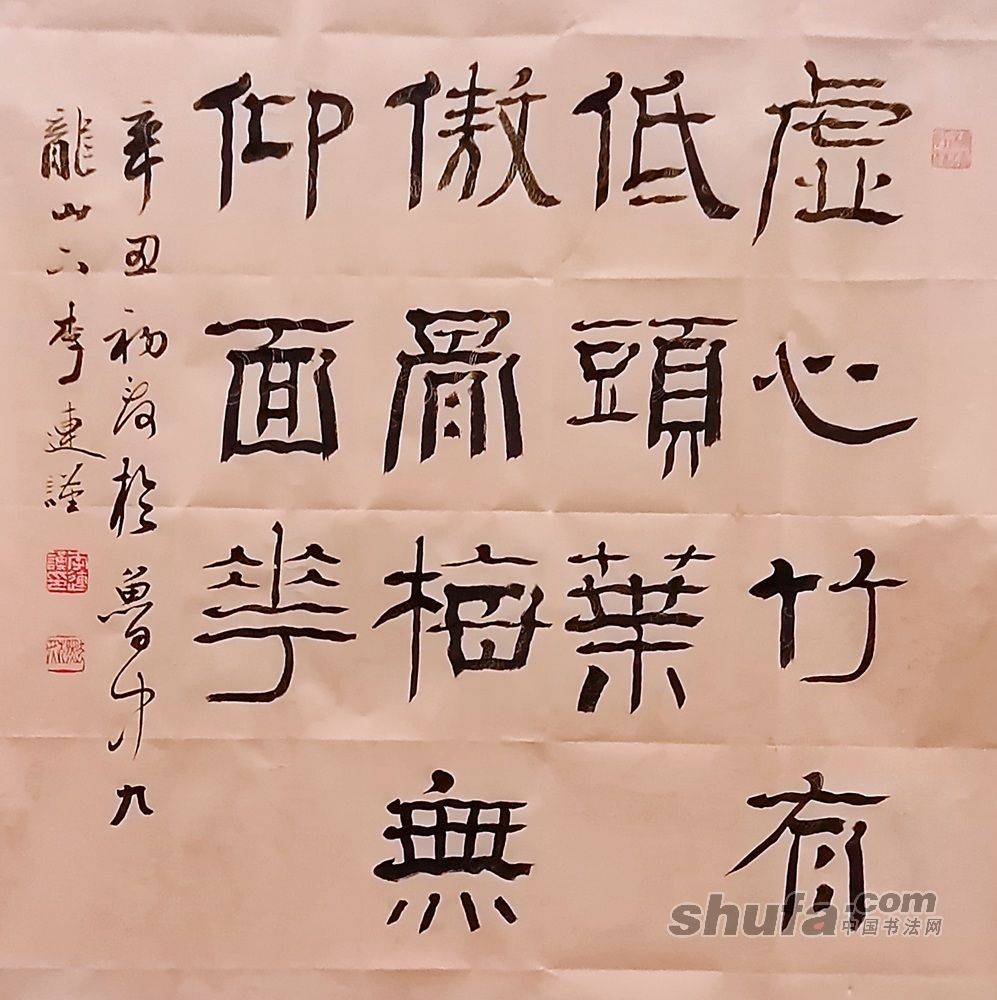 虛心竹有
低頭葉
傲骨梅無
仰面花
辛丑初夏於魯中九
龍山下李連謹
shufa.com
中国书法网